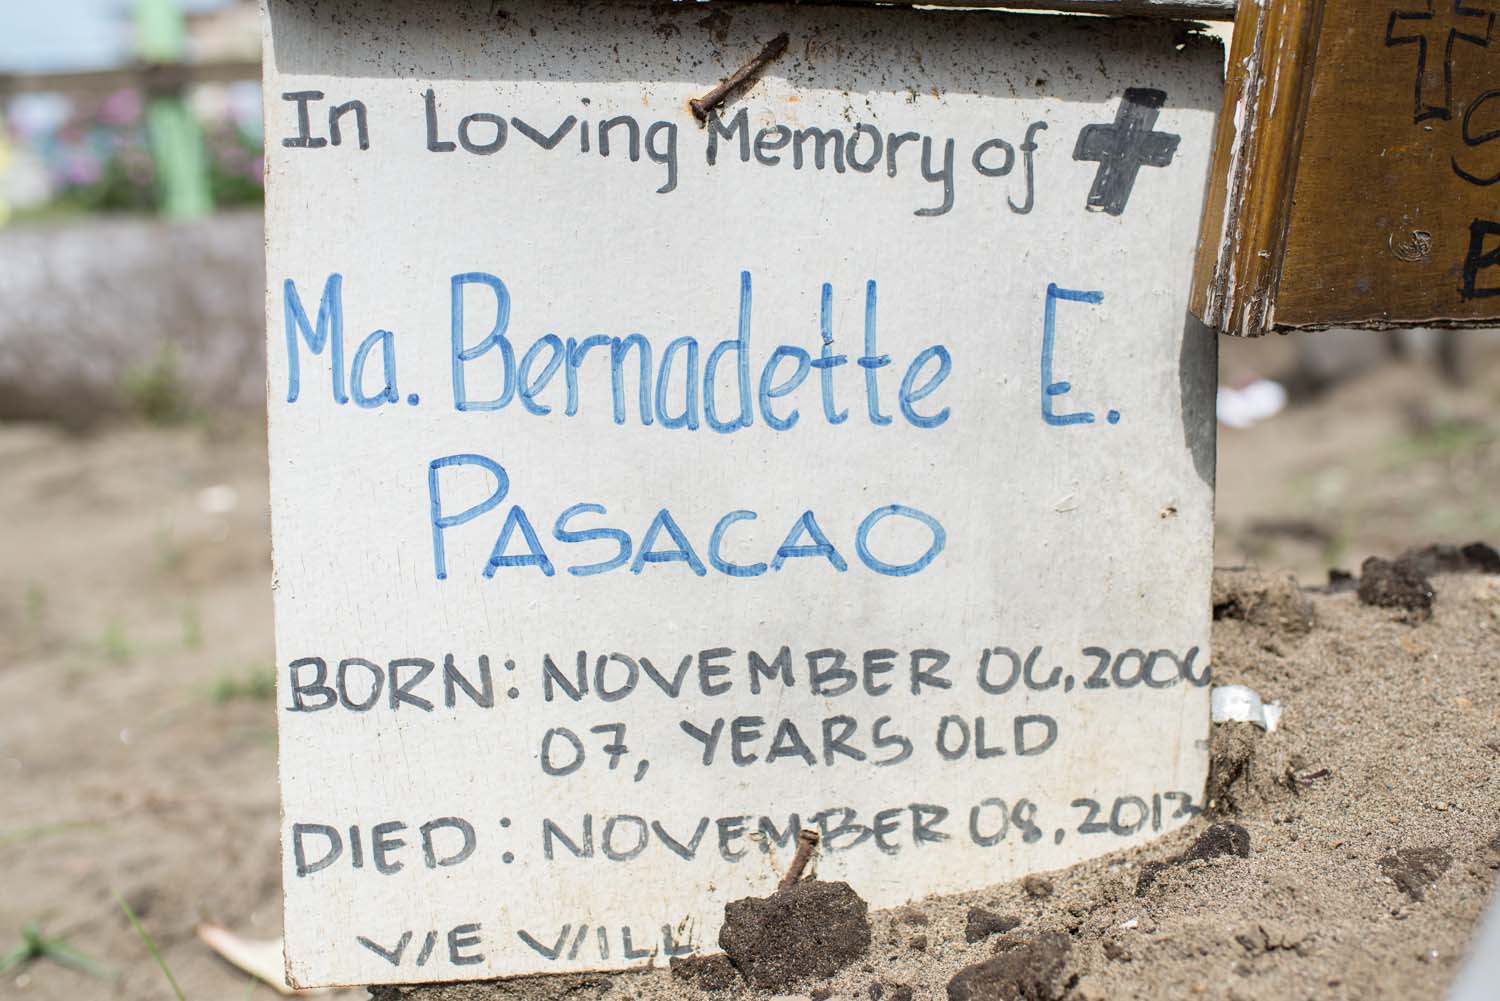 In Loving Memory of
Ma. Bernadette E.
PASACAO
BORN: NOVEMBER 06, 2006
07, YEARS OLD
DIED: NOVEMBER 08, 2013
WE WILL